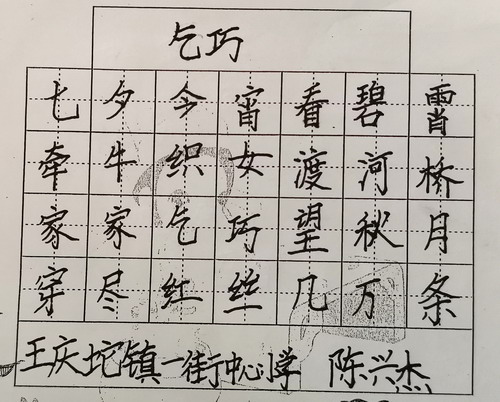 乞巧
七夕今宵看碧霄
牵牛织女渡河桥
家家乞巧望秋月
穿尽红丝几万条
王庆坨镇一街中心小学 陈兴杰